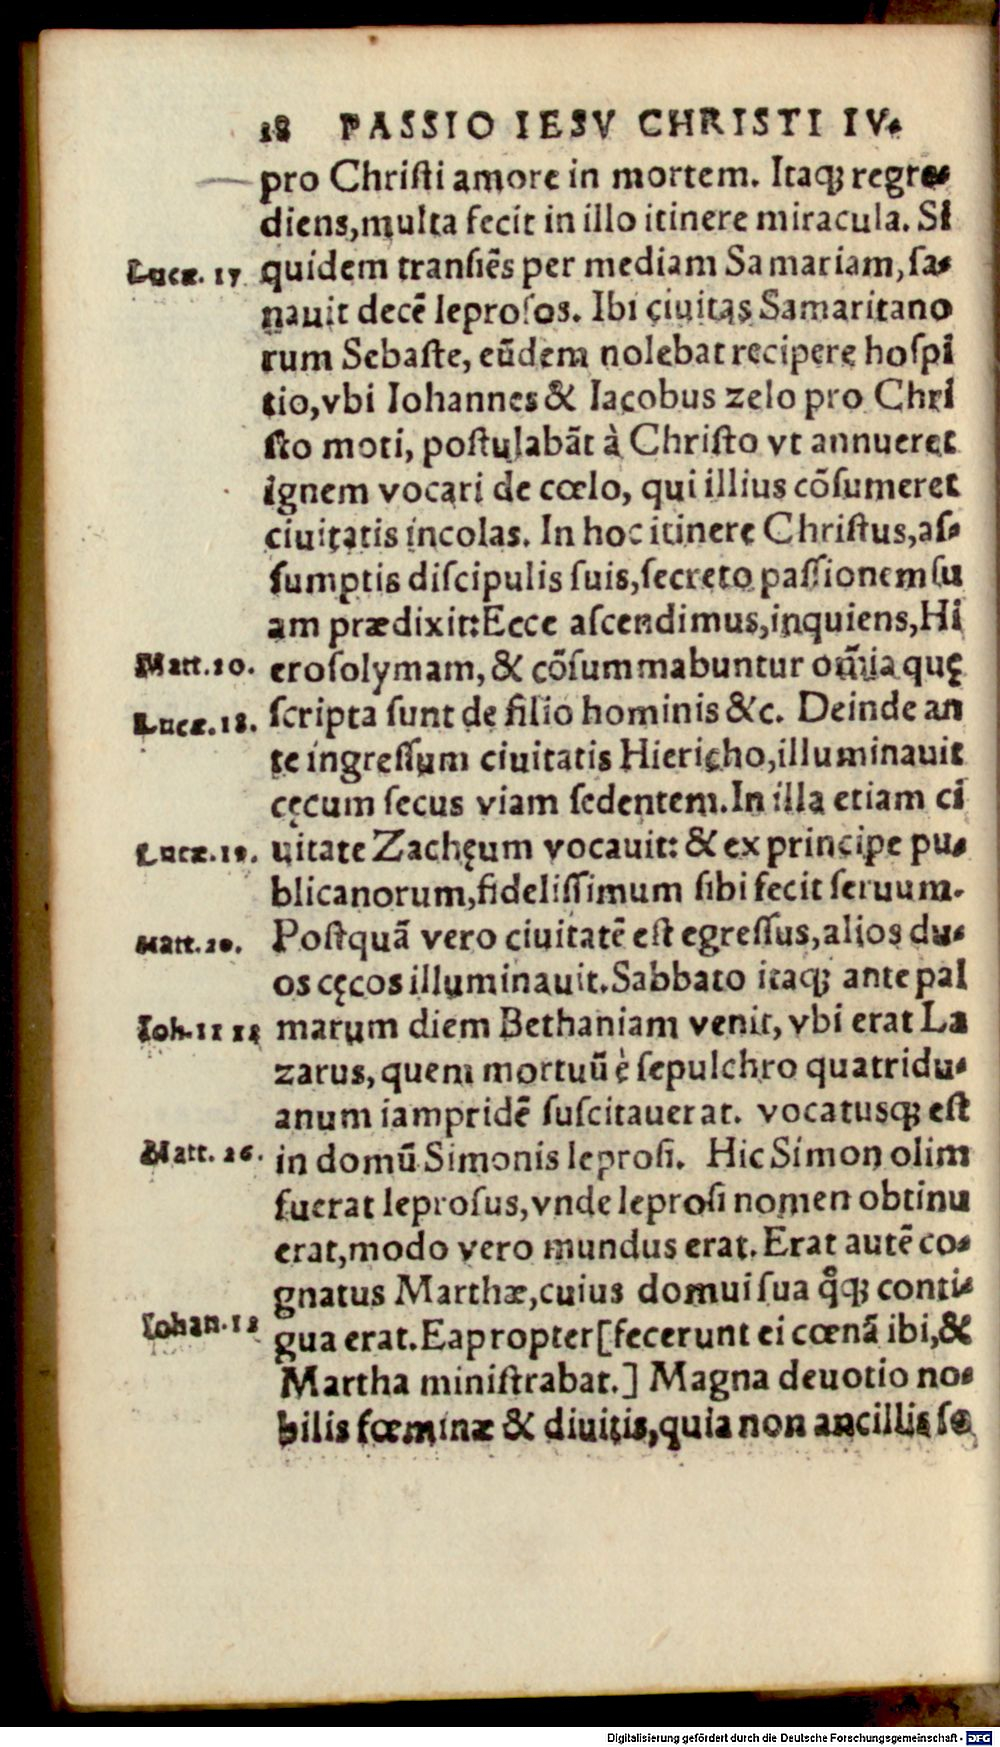 18 PASSIO IESV CHRISTI IV.
pro Chriſti amore in mortem. Itaqꝫ regre-
diens,multa fecit in illo itinere miracula. Si
Lucæ. 17 quidem tranſiẽs per mediam Samariam,ſa-
nauit decẽ leproſos. Ibi ciuitas Samaritano
rum Sebaſte, eũdem nolebat recipere hoſpi
tio,vbi Iohannes & Iacobus zelo pro Chri
ſto moti, poſtulabãt à Chriſto vt annueret
ignem vocari de cœlo, qui illius cõſumeret
ciuitatis incolas. In hoc itinere Chriſtus,aſ-
ſumptis diſcipulis ſuis,ſecreto paſſionem ſu
am prædixit:Ecce aſcendimus,inquiens,Hi
Matt.20. eroſolymam, & cõſummabuntur om̃ia quę
Lucæ.18. ſcripta ſunt de filio hominis &c. Deinde an
te ingreſſum ciuitatis Hiericho,illuminauit
cęcum ſecus viam ſedentem.In illa etiam ci
Lucæ.19. uitate Zachęum vocauit: & ex principe pu-
blicanorum,fideliſſimum ſibi fecit ſeruum.
Matt.20. Poſtquã vero ciuitatẽ eſt egreſſus,alios du-
os cęcos illuminauit.Sabbato itaqꝫ ante pal
Ioh.11 12 marum diem Bethaniam venit, vbi erat La
zarus, quem mortuũ è ſepulchro quatridu-
anum iampridẽ ſuſcitauerat. vocatusqꝫ eſt
Matt. 26. in domũ Simonis leproſi. Hic Simon olim
fuerat leproſus,vnde leproſi nomen obtinu
erat,modo vero mundus erat. Erat autẽ co-
gnatus Marthæ,cuius domui ſua qͦqꝫ conti-
Iohan.12 gua erat.Eapropter[fecerunt ei cœnã ibi,&
Martha miniſtrabat.] Magna deuotio no-
bilis fœminæ & diuitis,quia non ancillis ſe
Digitalisierung gefördert durch die Deutsche Forschungsgemeinschaft - DFG